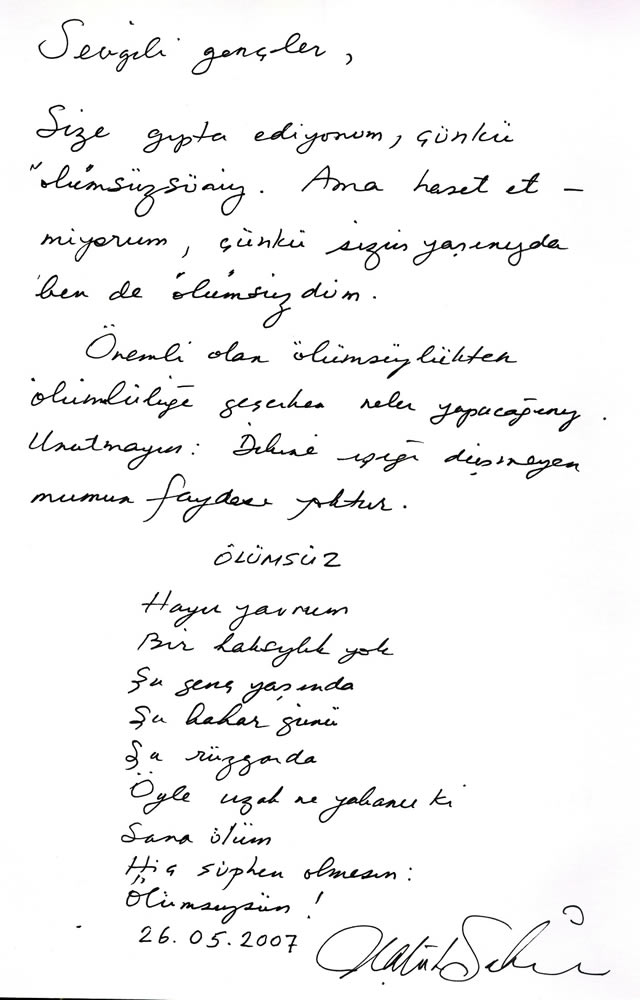 Sevgili gençler,
Size gıpta ediyorum, çünkü
"ölümsüz"sünüz. Ama haset et-
miyorum, çünkü sizin yaşınızda
ben de "ölümsüz"düm.
Önemli olan ölümsüzlükten
ölümlülüğe geçerken neler yapacağınız.
Unutmayın: Dibine ışığı düşmeyen
mumun faydası yoktur.
ÖLÜMSÜZ
Hayır yavrum
Bir haksızlık yok
Şu genç yaşında
Şu bahar günü
Şu rüzgarda
Öyle uzak ne yabancı ki
Sana ölüm
Hiç şüphen olmasın:
Ölümsüzsün!
26.05.2007
Haluk Şahin